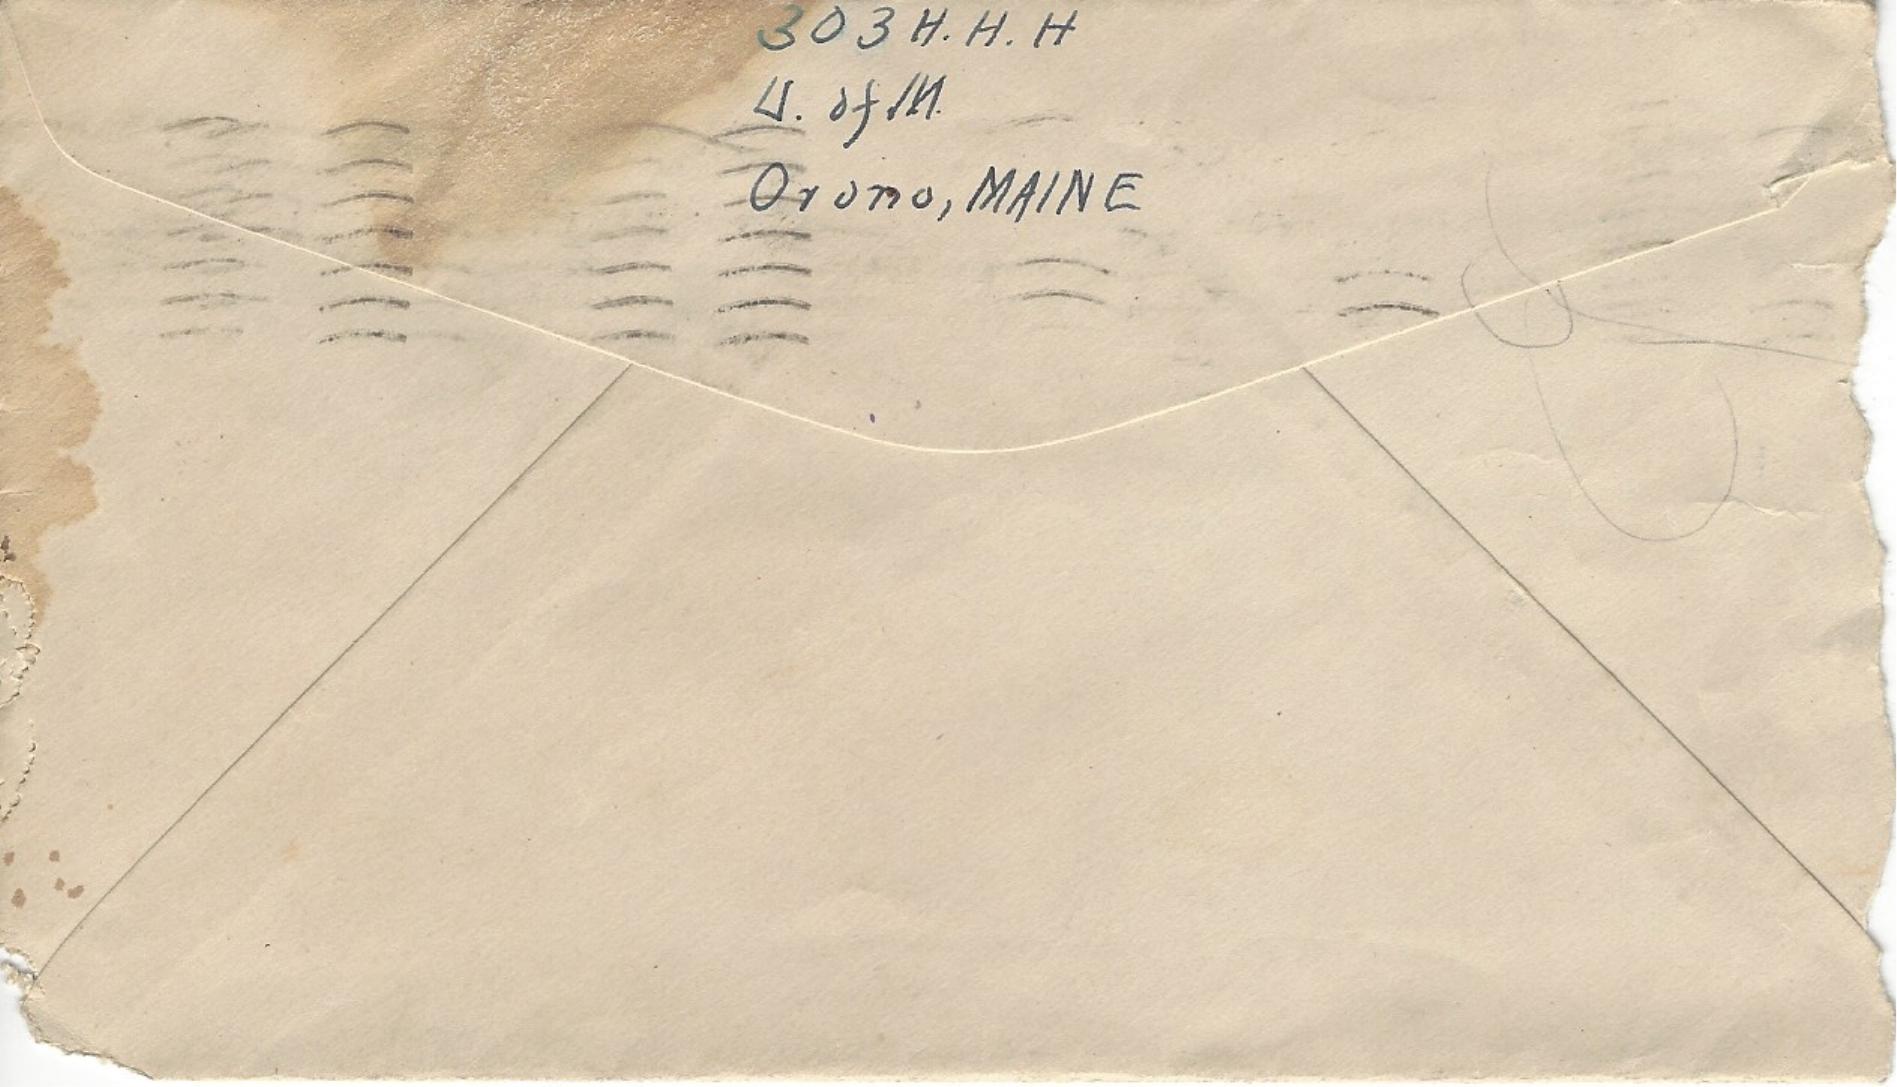 303 H. H. H
U. of M.
Orono, MAINE